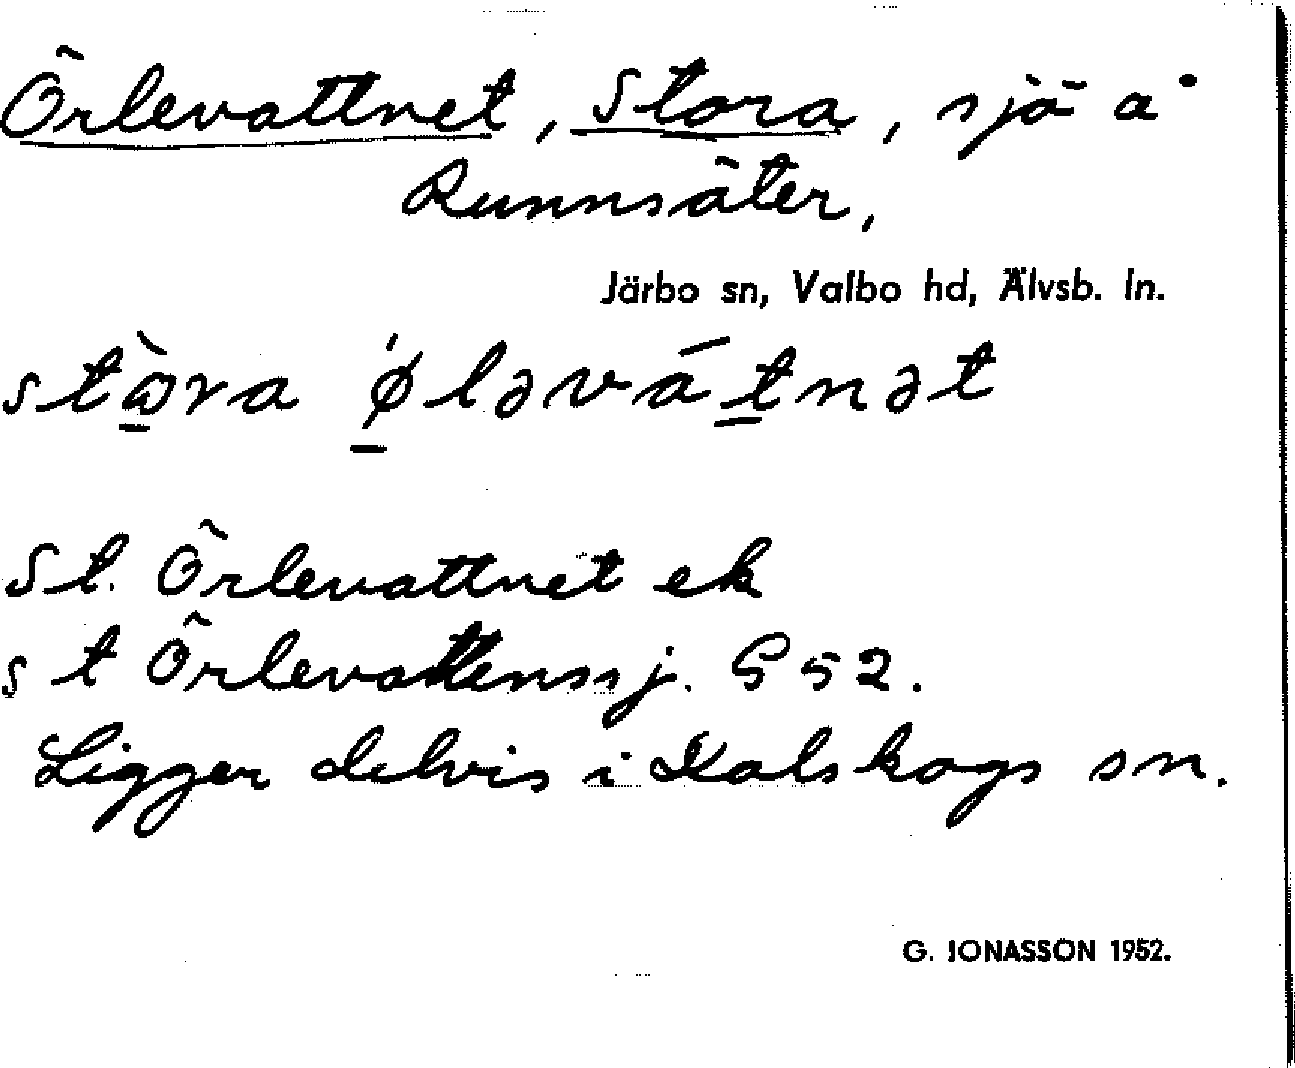 Örlevattnet, Stora, sjö å
Runnsäter,
Järbo sn, Valbo hd, Älvsb. ln.
stὼra ǿ̱ləvát̲nət
St. Örlevattnet ek
st Örlevattenssj. G 52.
Ligger delvis i Kalskogs sn.
G. JONASSON 1952.